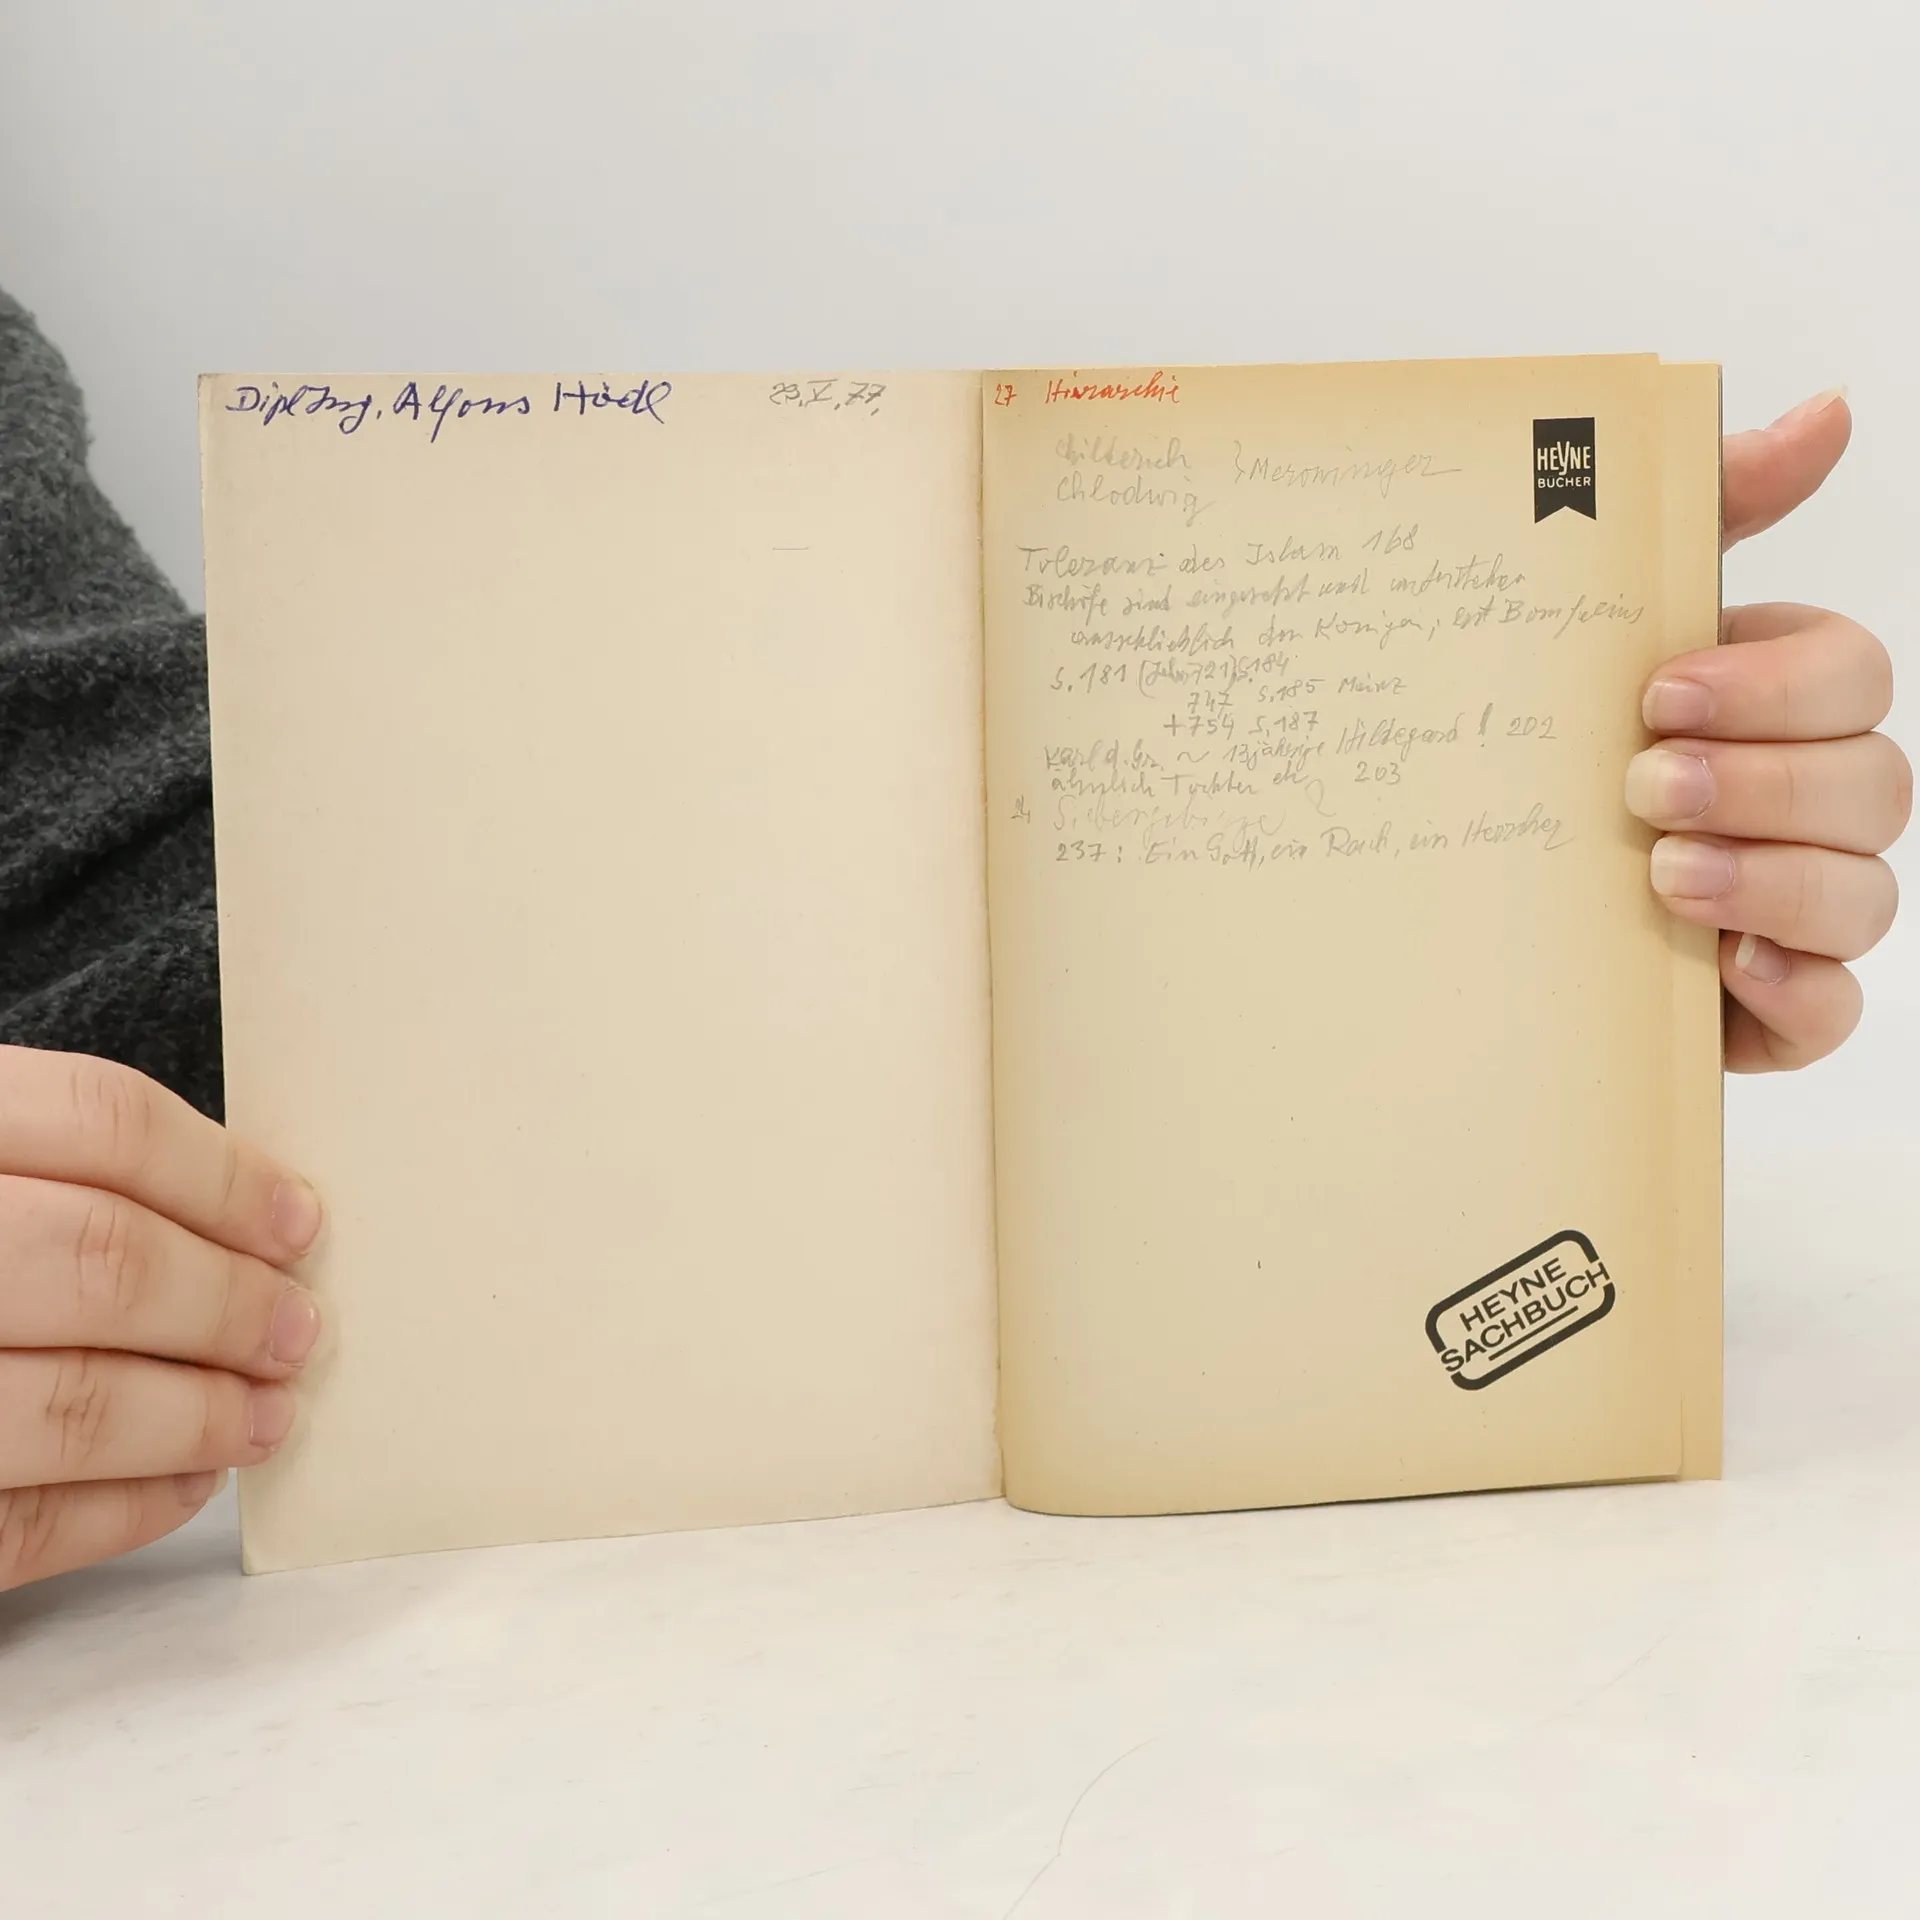 Dipl Ing. Alfons Hödl
23.V.77.
27 Hierarchie
HEYNE
BÜCHER
Childerich
Chlodwig } Merowinger
Toleranz des Islam 168
Bischöfe sind eingesetzt und unterstehen
ausschließlich den Königen; erst Bonifacius
S. 181 (Jahr 721) S. 184
747 S. 185 Mainz
+754 S. 187
Karl d. Gr. ~ 13jährige Hildegard! 202
ähnlich Tochter 203
Siebengebirge
237: Ein Gott, ein Reich, ein Herrscher
HEYNE
SACHBUCH